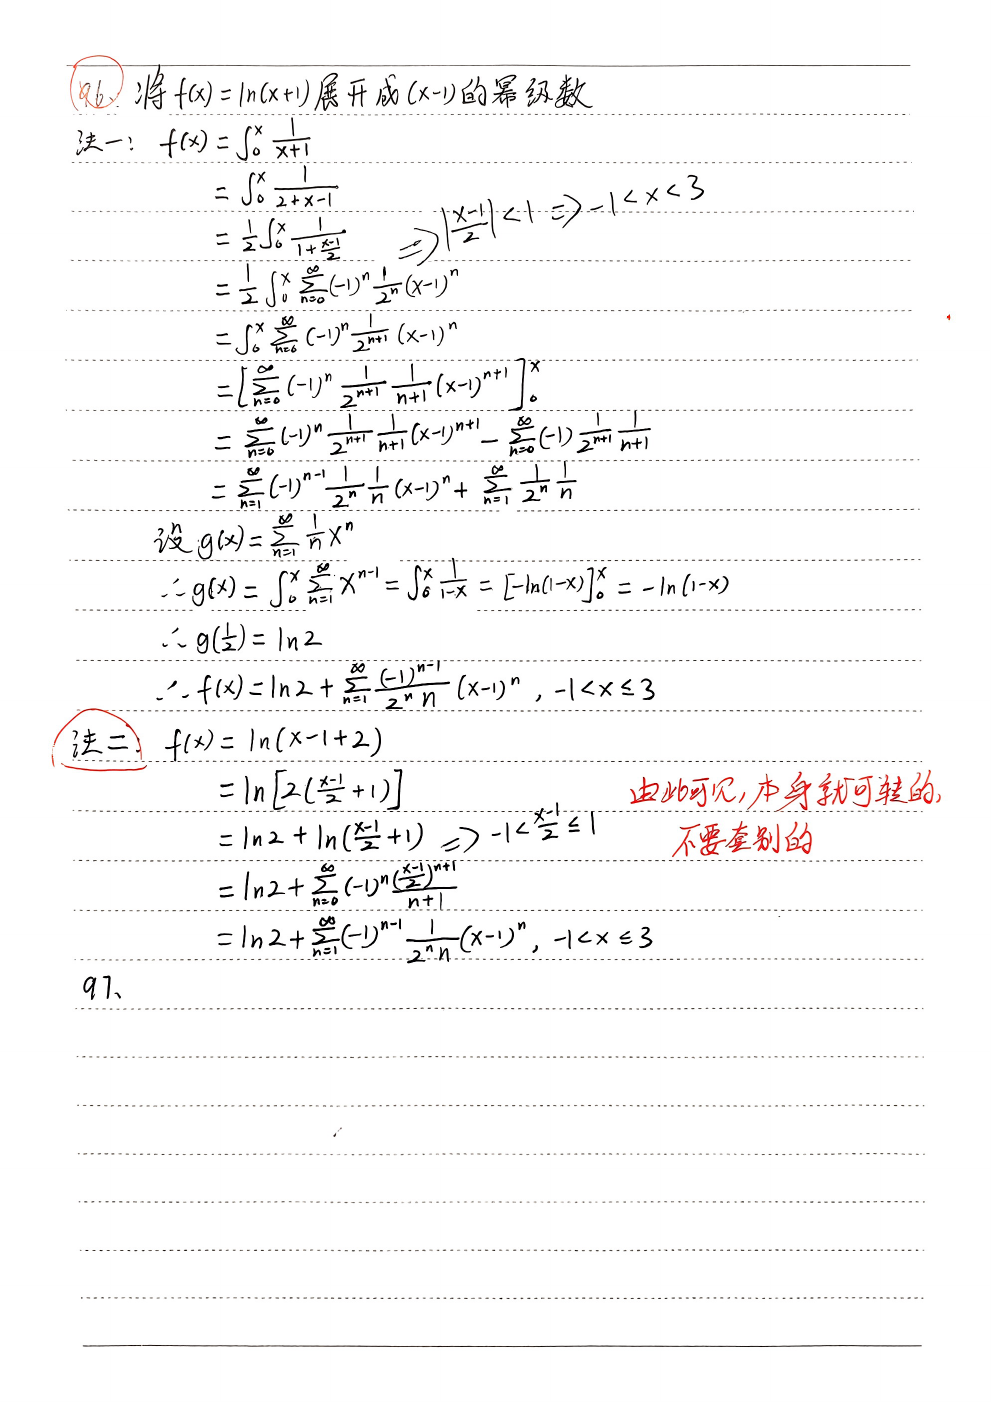 96、将 f(x)=ln(x+1)展开成(x-1)的幂级数
法一: f(x) = ∫₀ˣ 1/(x+1)
= ∫₀ˣ 1/(2+x-1)
= 1/2 ∫₀ˣ 1/(1+(x-1)/2) ⇒ |(x-1)/2| < 1 ⇒ -1 < x < 3
= 1/2 ∫₀ˣ ∑_{n=0}^{∞} (-1)ⁿ 1/2ⁿ (x-1)ⁿ
= ∫₀ˣ ∑_{n=0}^{∞} (-1)ⁿ 1/2ⁿ⁺¹ (x-1)ⁿ
= [∑_{n=0}^{∞} (-1)ⁿ 1/2ⁿ⁺¹ 1/(n+1) (x-1)ⁿ⁺¹]₀ˣ
= ∑_{n=0}^{∞} (-1)ⁿ 1/2ⁿ⁺¹ 1/(n+1) (x-1)ⁿ⁺¹ - ∑_{n=0}^{∞} (-1) 1/2ⁿ⁺¹ 1/(n+1)
= ∑_{n=1}^{∞} (-1)ⁿ⁻¹ 1/2ⁿ 1/n (x-1)ⁿ + ∑_{n=1}^{∞} 1/2ⁿ 1/n
设 g(x) = ∑_{n=1}^{∞} 1/n xⁿ
∴ g(x) = ∫₀ˣ ∑_{n=1}^{∞} xⁿ⁻¹ = ∫₀ˣ 1/(1-x) = [-ln(1-x)]₀ˣ = -ln(1-x)
∴ g(1/2) = ln2
∴ f(x) = ln2 + ∑_{n=1}^{∞} (-1)ⁿ⁻¹/(2ⁿ n) (x-1)ⁿ , -1 < x ≤ 3
法二: f(x) = ln(x-1+2)
= ln[2((x-1)/2 + 1)]
由此可见,本身就可转的,
= ln2 + ln((x-1)/2 + 1) ⇒ -1 < (x-1)/2 ≤ 1
不要套别的
= ln2 + ∑_{n=0}^{∞} (-1)ⁿ ((x-1)/2)ⁿ⁺¹/(n+1)
= ln2 + ∑_{n=1}^{∞} (-1)ⁿ⁻¹ 1/(2ⁿ n) (x-1)ⁿ, -1 < x ≤ 3
97、